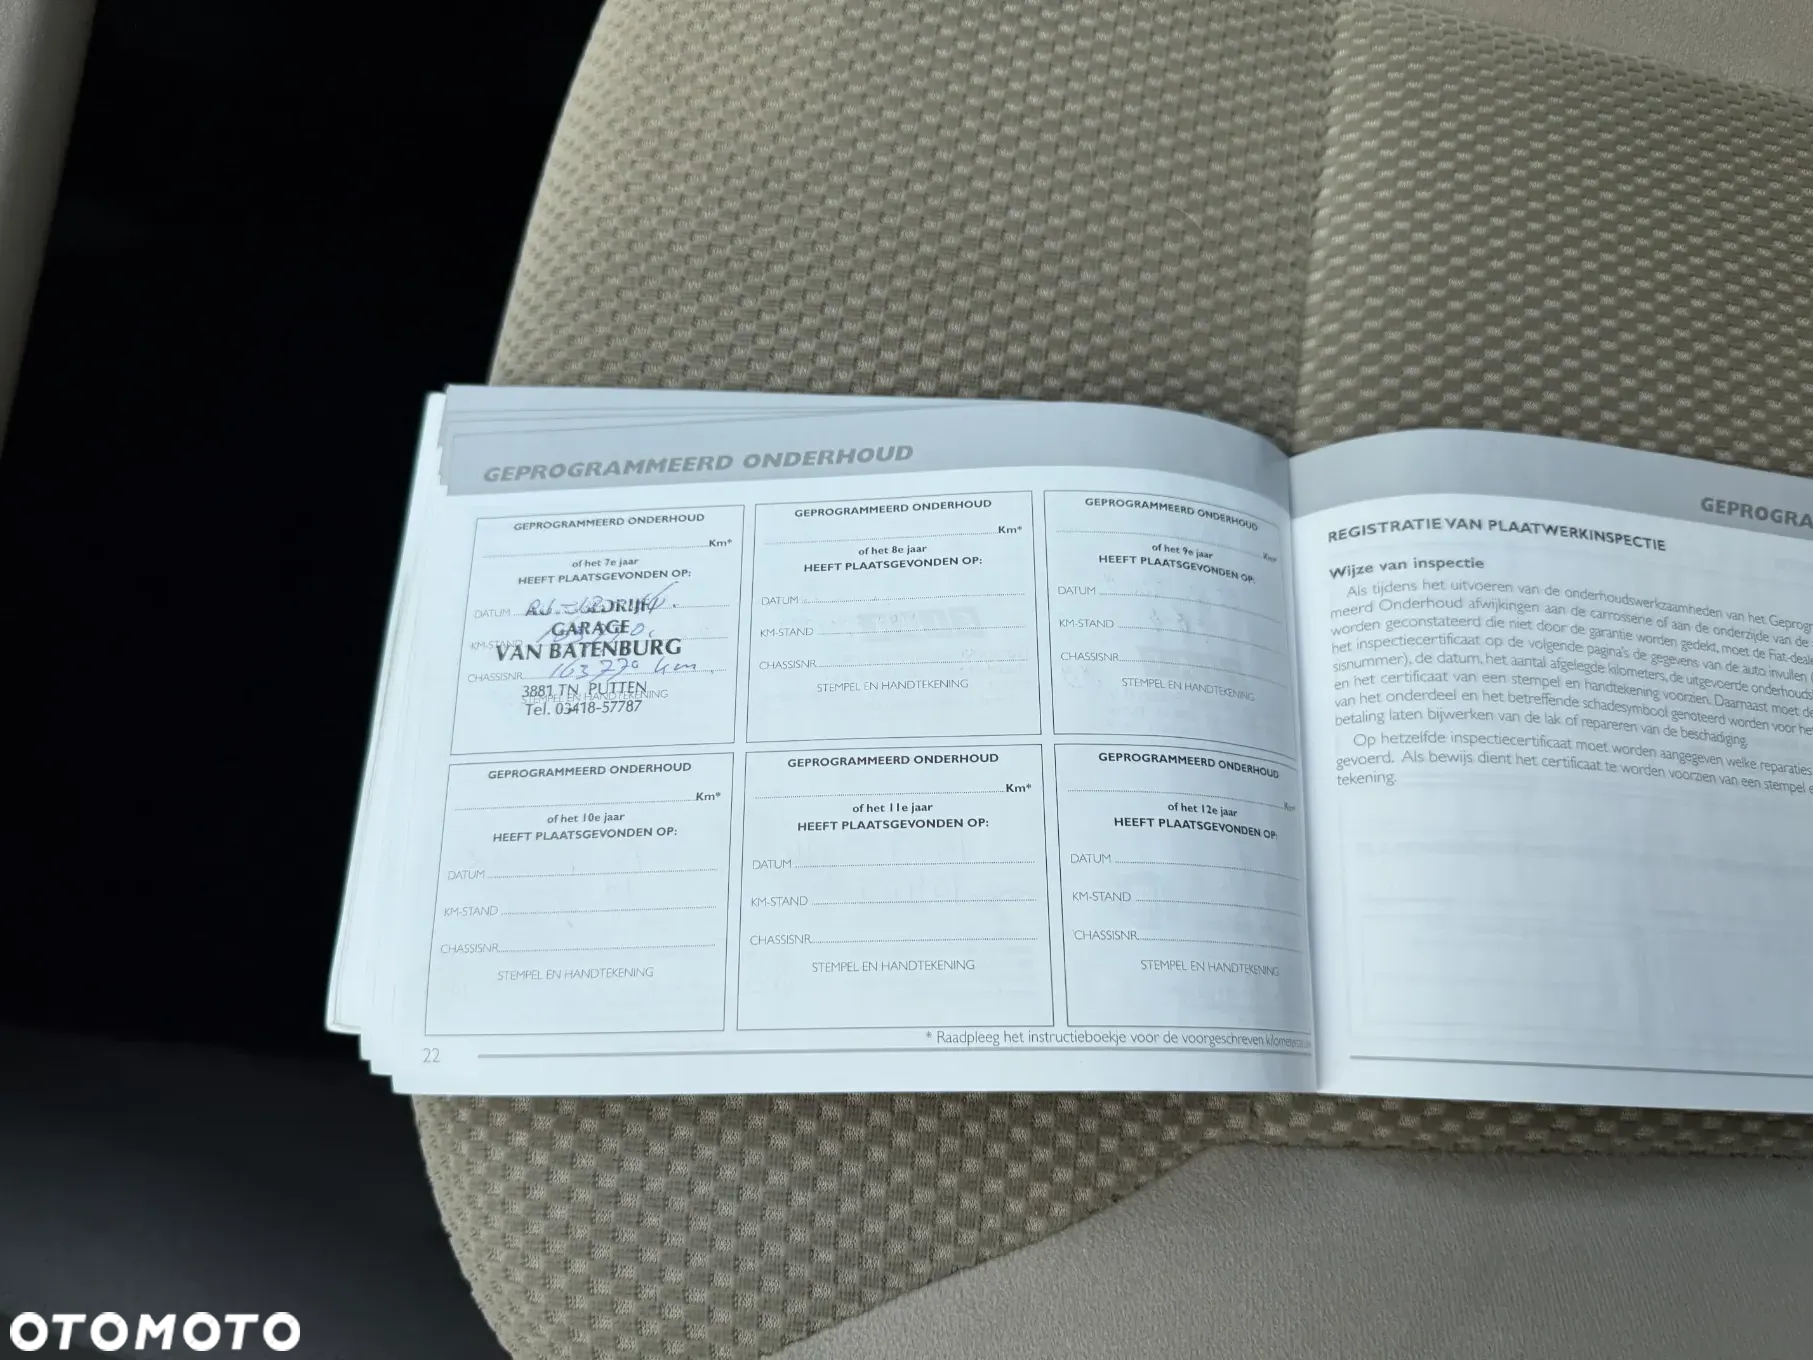 GEPROGRAMMEERD ONDERHOUD
GEPROGRAMMEERD ONDERHOUD
Km*
of het 7e jaar
HEEFT PLAATSGEVONDEN OP:
DATUM
GARAGE
KM-STAND
VAN BATENBURG
CHASSISNR. 163770 km
3881 TN PUTTEN
STEMPEL EN HANDTEKENING
Tel. 03418-57787
GEPROGRAMMEERD ONDERHOUD
Km*
of het 8e jaar
HEEFT PLAATSGEVONDEN OP:
DATUM
KM-STAND
CHASSISNR.
STEMPEL EN HANDTEKENING
GEPROGRAMMEERD ONDERHOUD
Km*
of het 9e jaar
HEEFT PLAATSGEVONDEN OP:
DATUM
KM-STAND
CHASSISNR.
STEMPEL EN HANDTEKENING
GEPROGRAMMEERD ONDERHOUD
Km*
of het 10e jaar
HEEFT PLAATSGEVONDEN OP:
DATUM
KM-STAND
CHASSISNR.
STEMPEL EN HANDTEKENING
GEPROGRAMMEERD ONDERHOUD
Km*
of het 11e jaar
HEEFT PLAATSGEVONDEN OP:
DATUM
KM-STAND
CHASSISNR.
STEMPEL EN HANDTEKENING
GEPROGRAMMEERD ONDERHOUD
Km*
of het 12e jaar
HEEFT PLAATSGEVONDEN OP:
DATUM
KM-STAND
CHASSISNR.
STEMPEL EN HANDTEKENING
* Raadpleeg het instructieboekje voor de voorgeschreven
22
GEPROGRA
REGISTRATIE VAN PLAATWERKINSPECTIE
Wijze van inspectie
Als tijdens het uitvoeren van de onderhoudswerkzaamheden van het Geprogr
meerd Onderhoud afwijkingen aan de carrosserie of aan de onderzijde van de
worden geconstateerd die niet door de garantie worden gedekt, moet de Fiat-deale
het inspectiecertificaat op de volgende pagina's de gegevens van de auto invullen
sisnummer), de datum, het aantal afgelegde kilometers, de uitgevoerde onderhouds
en het certificaat van een stempel en handtekening voorzien. Daarnaast moet de
van het onderdeel en het betreffende schadesymbool genoteerd worden voor het
betaling laten bijwerken van de lak of repareren van de beschadiging.
Op hetzelfde inspectiecertificaat moet worden aangegeven welke reparaties
gevoerd. Als bewijs dient het certificaat te worden voorzien van een stempel e
tekening.
OTOMOTO